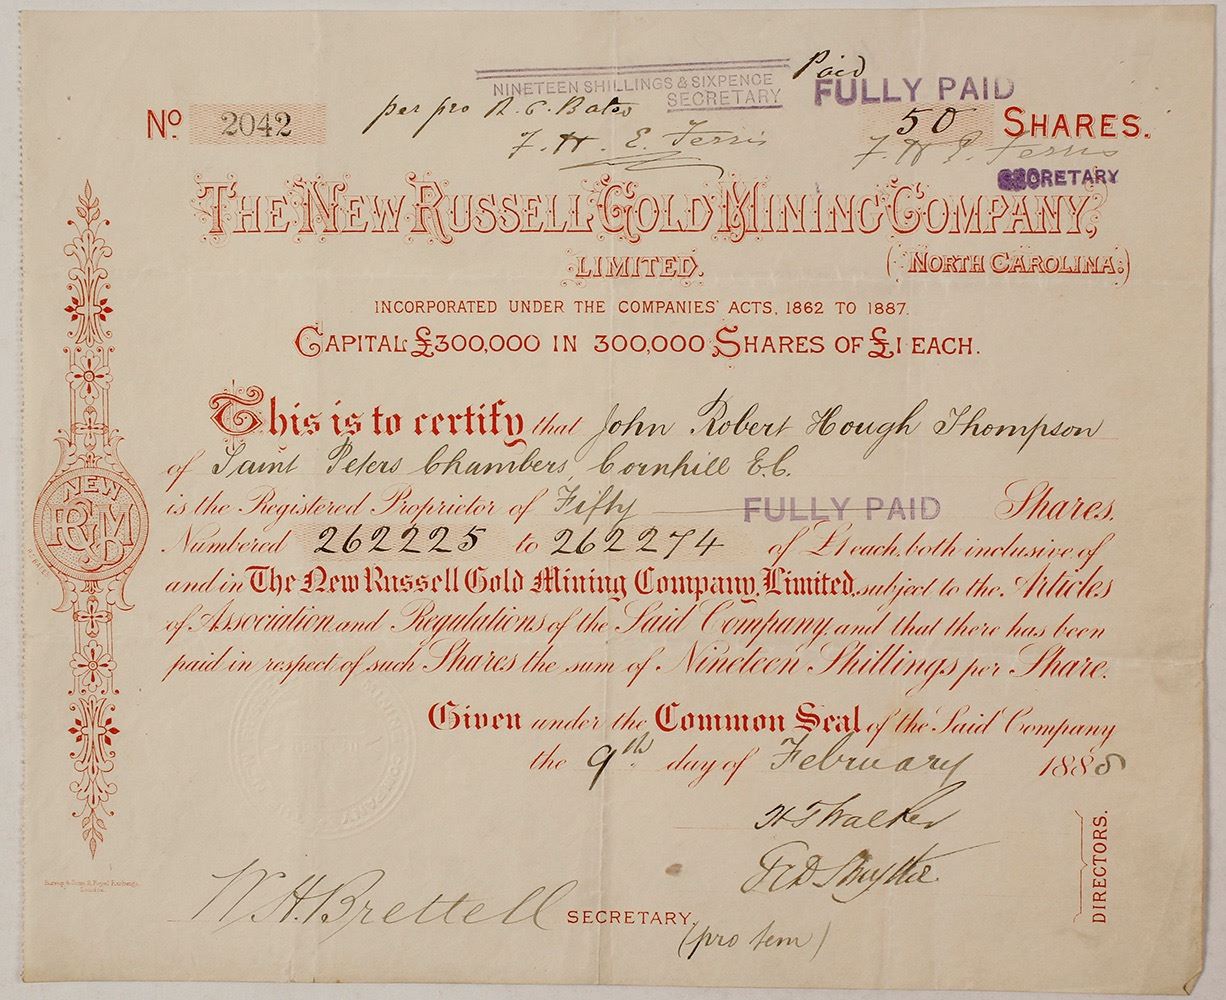 NINETEEN SHILLINGS & SIXPENCE Paid
SECRETARY FULLY PAID
No 2042 per pro R. C. Bates 50 SHARES.
F. H. E. Ferris F. H. E. Ferris
SECRETARY
THE NEW RUSSELL GOLD MINING COMPANY,
LIMITED. (NORTH CAROLINA.)
INCORPORATED UNDER THE COMPANIES' ACTS, 1862 TO 1887.
CAPITAL £300,000 IN 300,000 SHARES OF £1 EACH.
This is to certify that John Robert Hough Thompson
of Saint Peters Chambers, Cornhill E.C.
is the Registered Proprietor of Fifty FULLY PAID Shares,
Numbered 262225 to 262274 of £1 each, both inclusive of
and in The New Russell Gold Mining Company, Limited, subject to the Articles
of Association and Regulations of the Said Company, and that there has been
paid in respect of such Shares the sum of Nineteen Shillings per Share.
Given under the Common Seal of the Said Company
the 9th day of February 1888
H T Walker
DIRECTORS.
W. H. Brettell SECRETARY.
(pro tem)
NEW
RGM